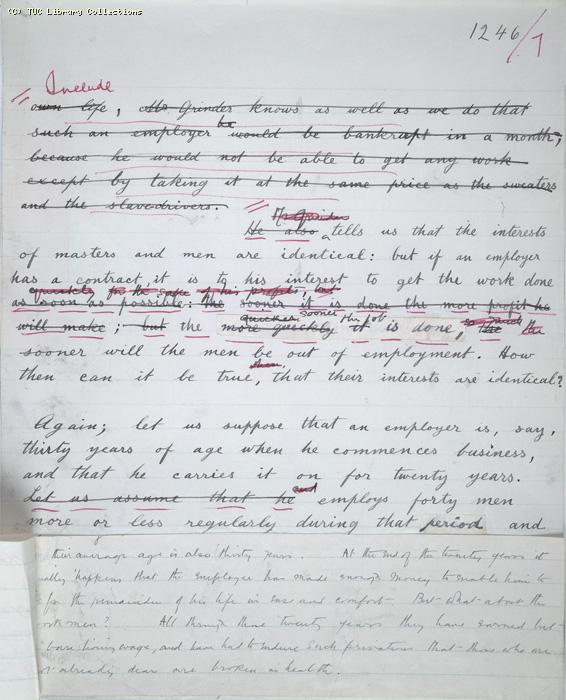 (c) TUC Library Collections
1246/7
Include
own life, Mr Grinder knows as well as we do that
be
such an employer would be bankrupt in a month;
because he would not be able to get any work
except by taking it at the same price as the sweaters
and the slavedrivers.
Mr Grinder
He also tells us that the interests
of masters and men are identical: but if an employer
has a contract, it is to his interest to get the work done
quickly for the sake of his profits, and
as soon as possible: the sooner it is done the more profit he
quicker sooner the job so much
will make; but the more quickly it is done, the the
sooner will the men be out of employment. How
then,
then can it be true, that their interests are identical?
Again; let us suppose that an employer is, say,
thirty years of age when he commences business,
and that he carries it on for twenty years.
and
Let us assume that he employs forty men
more or less regularly during that period and
their average age is also thirty years. At the end of the twenty years it
ally happens that the employer has made enough money to enable him to
for the remainder of his life in ease and comfort. But what about the
workmen? All through those twenty years they have earned but
bare living wage, and have had to endure such privations that those who are
not already dead are broken in health.